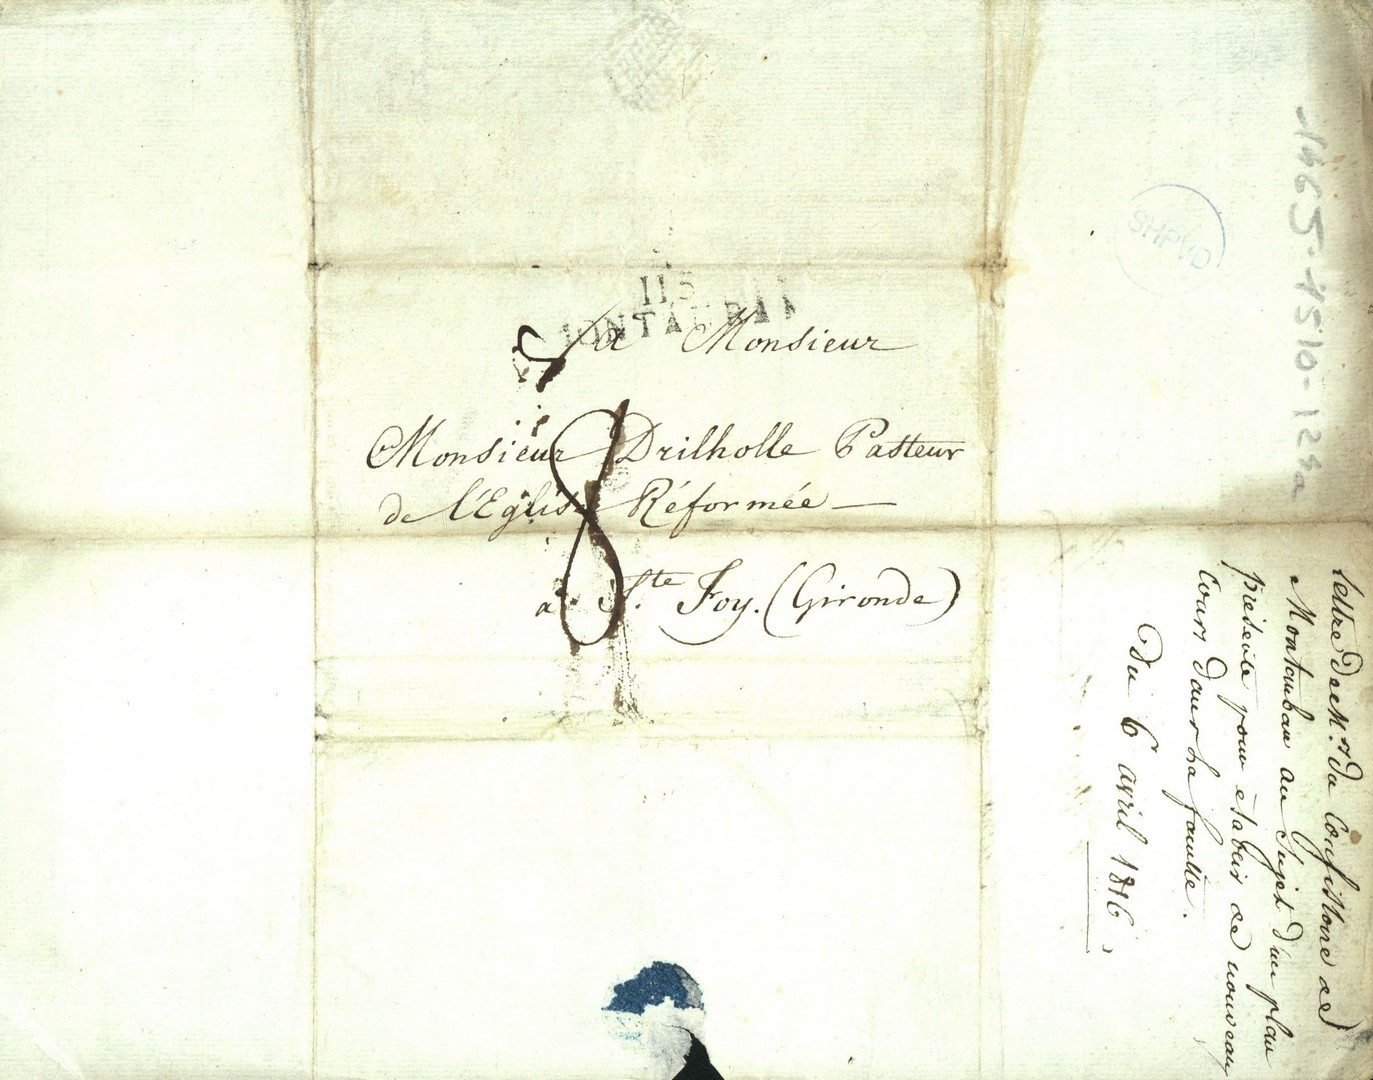 115
MONTAUBAN
à Monsieur
Monsieur Drilholle Pasteur
de l'Eglise Réformée
à Ste Foy. (Gironde)
8
SHPVD
lettre de Mrs du Consistoire de
Montauban au Sujet d'un plan
présenté pour établir de nouveaux
Cours dans la faculté.
Du 6 avril 1816.